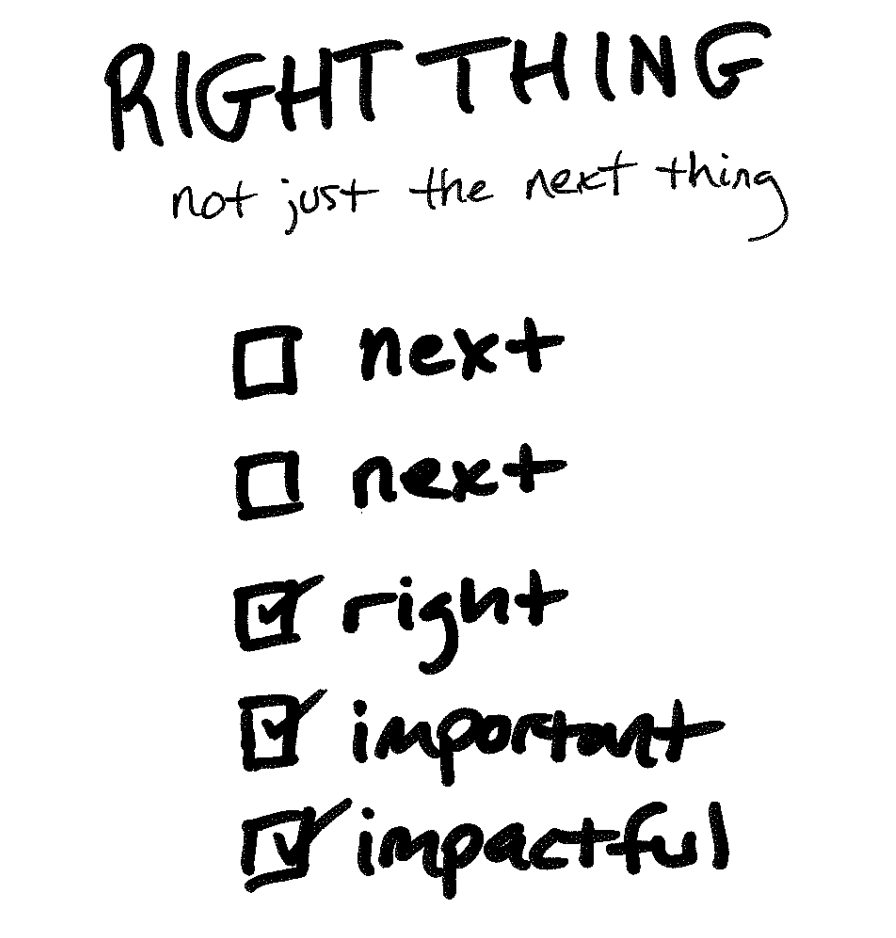 RIGHT THING
not just the next thing
next
next
right
important
impactful